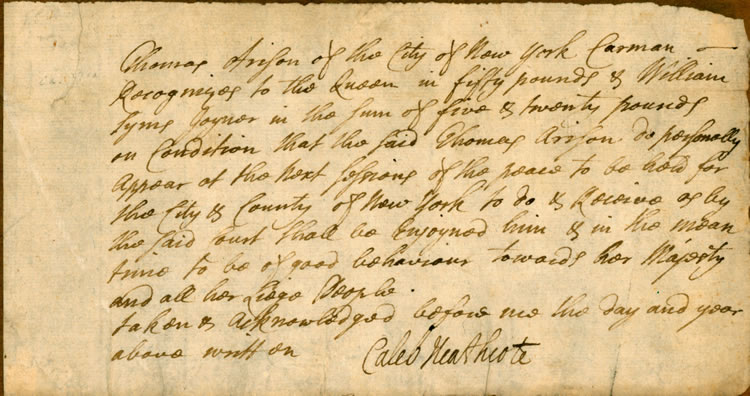 Thomas Arison of the City of New York Carman
Recognizes to the Queen in fifty pounds & William
Syms Joyner in the sum of five & twenty pounds
on Condition that the said Thomas Arison do personally
Appear at the Next Sessions of the peace to be held for
the City & County of New York to do & Receive as by
the said Court shall be Enjoyned him & in the mean
time to be of good behaviour towards her Majesty
and all her Liege People.
taken & Acknowledged before me the day and year
above written Caleb Heathcote